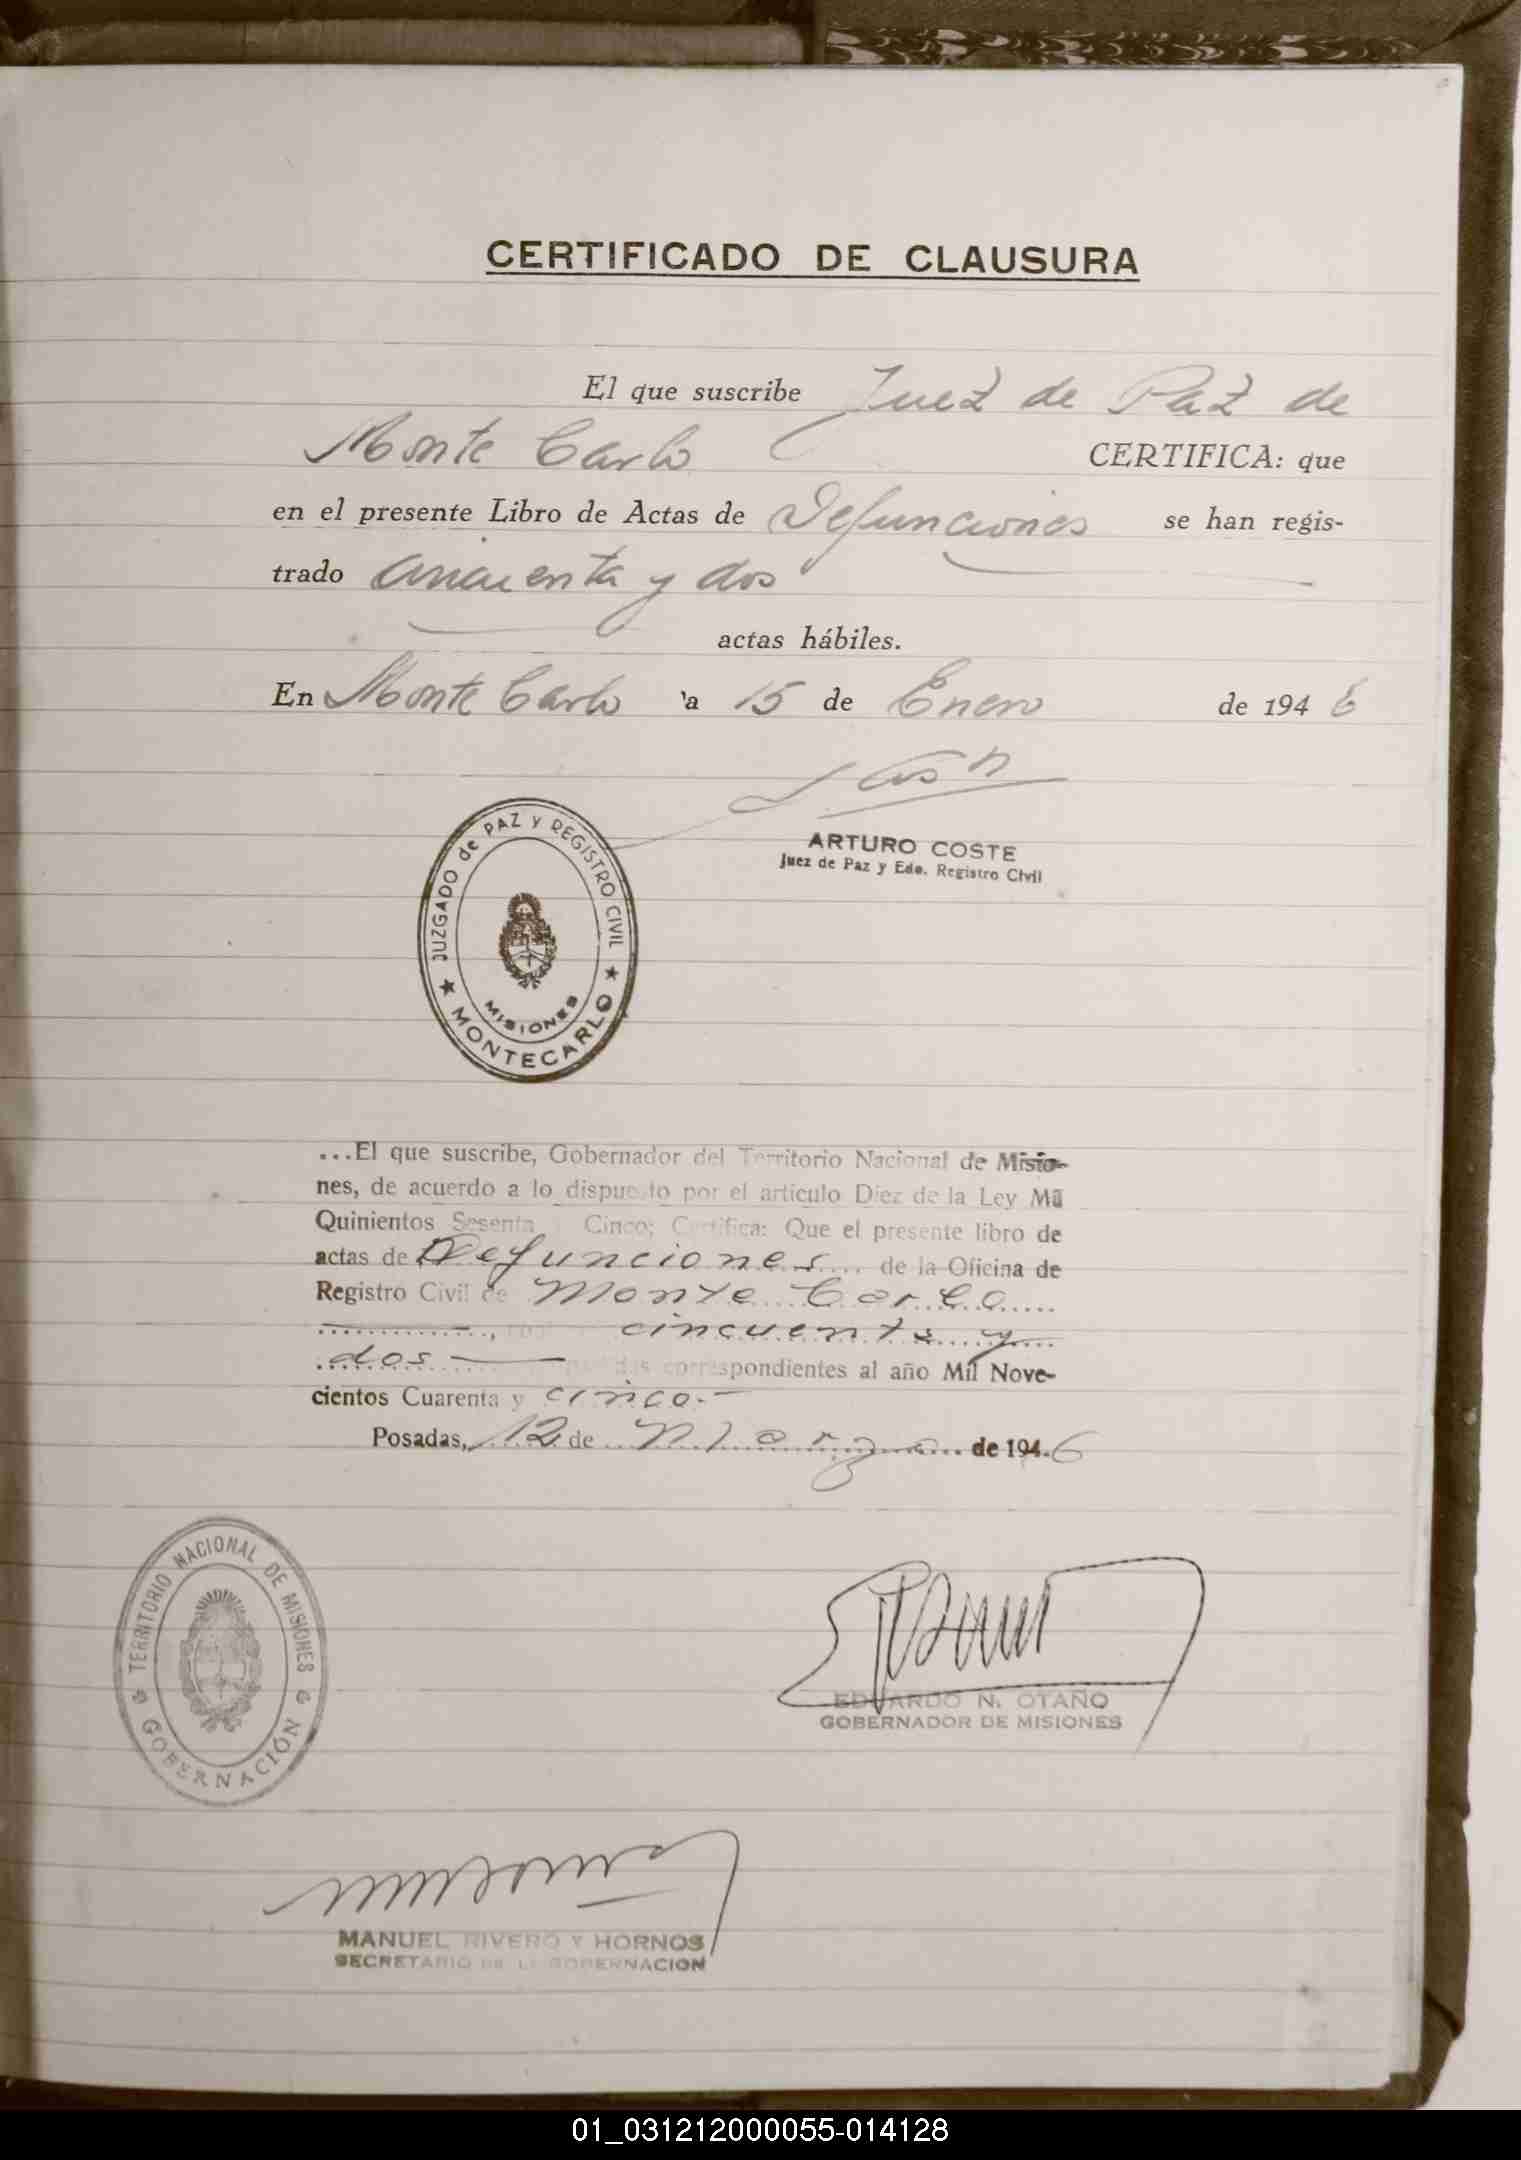 CERTIFICADO DE CLAUSURA
El que suscribe Juez de Paz de
Monte Carlo CERTIFICA: que
en el presente Libro de Actas de Defunciones se han regis-
trado cincuenta y dos
actas hábiles.
En Monte Carlo a 15 de Enero de 1946
ARTURO COSTE
Juez de Paz y Edo. Registro Civil
JUZGADO de PAZ Y REGISTRO CIVIL
MISIONES
★ MONTECARLO ★
...El que suscribe, Gobernador del Territorio Nacional de Misio-
nes, de acuerdo a lo dispuesto por el artículo Diez de la Ley Mil
Quinientos Sesenta Cinco; Certifica: Que el presente libro de
actas de Defunciones.... de la Oficina de
Registro Civil de Monte Carlo.....
cincuenta y....
dos correspondientes al año Mil Nove-
cientos Cuarenta y cinco.-
Posadas, 12 de Marzo de 194.6
TERRITORIO NACIONAL DE MISIONES
GOBERNACIÓN
EDUARDO N. OTAÑO
GOBERNADOR DE MISIONES
MANUEL RIVERO Y HORNOS
SECRETARIO DE LA GOBERNACION
01_031212000055-014128